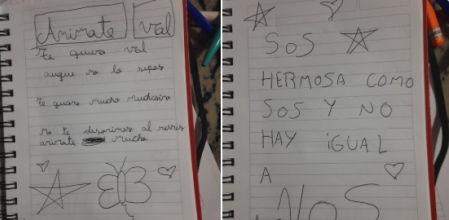 Animate Val
Te quiero Val
aunque no lo sepas
Te quiero mucho muchisimo
No te desanimes al
animate mucho
SOS
HERMOSA COMO
SOS Y NO
HAY IGUAL
A
VOS